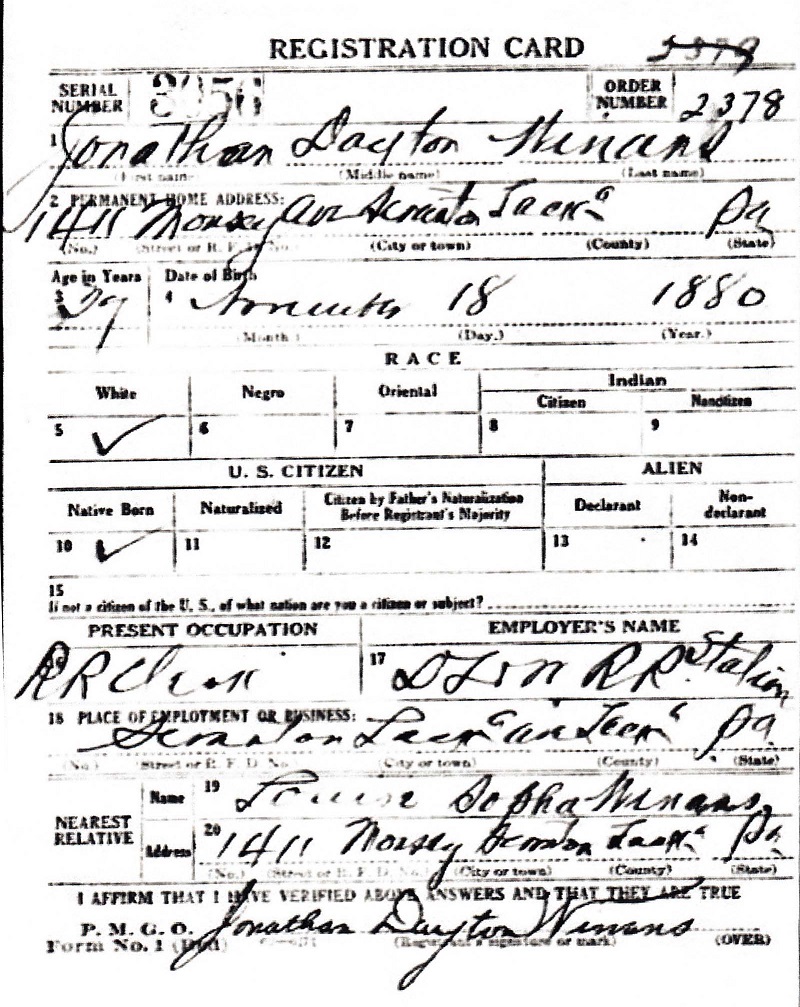 REGISTRATION CARD 2379
SERIAL NUMBER 3956 ORDER NUMBER 2378
1 Jonathan Dayton Winans
(First name) (Middle name) (Last name)
2 PERMANENT HOME ADDRESS:
1411 Ave Scranton Lack'a Pa
(No.) (Street or R. F. D. No.) (City or town) (County) (State)
Age in Years Date of Birth
3 4 November 18 1880
(Month.) (Day.) (Year.)
RACE
White Negro Oriental Indian
Citizen Noncitizen
5 ✓ 6 7 8 9
U. S. CITIZEN ALIEN
Native Born Naturalized Citizen by Father's Naturalization Before Registrant's Majority Declarant Non-declarant
10 ✓ 11 12 13 14
15
If not a citizen of the U. S., of what nation are you a citizen or subject?
PRESENT OCCUPATION EMPLOYER'S NAME
16 RR Clerk 17 D L & W RR Station
18 PLACE OF EMPLOYMENT OR BUSINESS:
Scranton Lack'a Ave Lack'a Pa
(No.) (Street or R. F. D. No.) (City or town) (County) (State)
NEAREST RELATIVE
Name 19 Louise Sopha Winans
Address 20 1411 Scranton Lack'a Pa
(No.) (Street or R. F. D. No.) (City or town) (County) (State)
I AFFIRM THAT I HAVE VERIFIED ABOVE ANSWERS AND THAT THEY ARE TRUE
P. M. G. O.
Form No. 1 (Red) Jonathan Dayton Winans
(Registrant's signature or mark) (OVER)